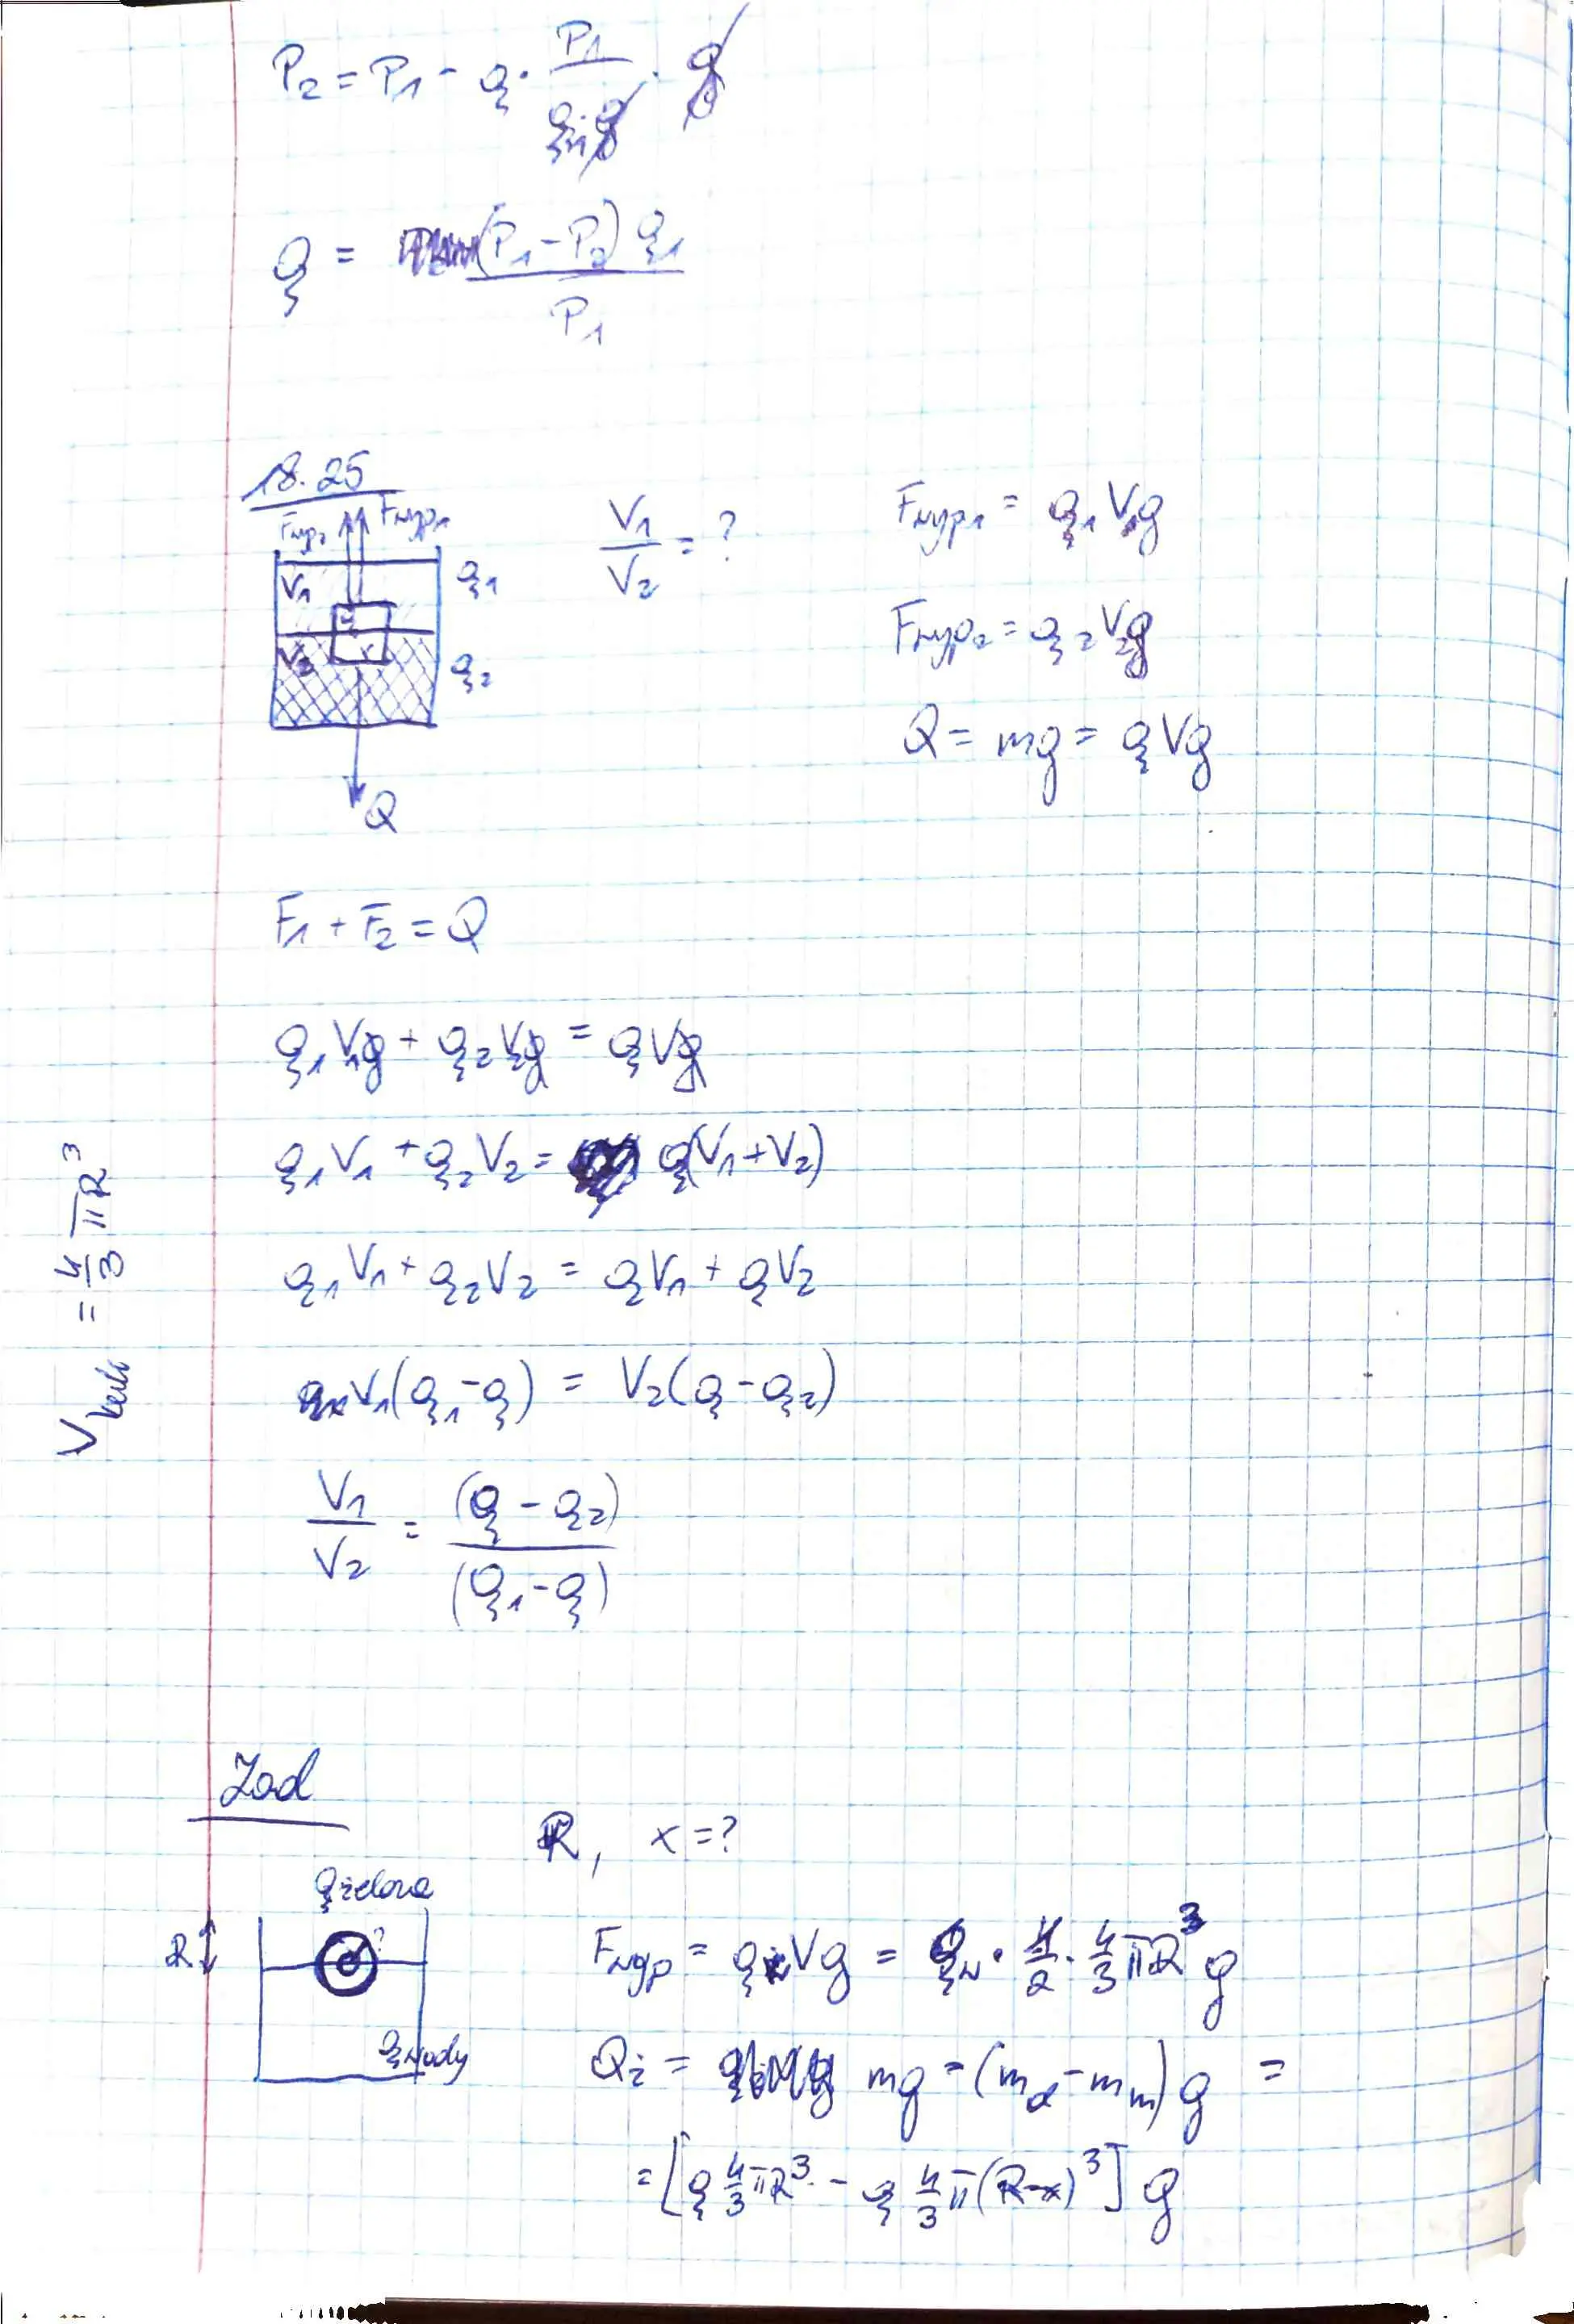 P₂ = P₁ - ρ · P₁/(ρ₁·g) · g
ρ = (P₁-P₂)ρ₁ / P₁
18.25
Fwyp₂ Fwyp₁
V₁ ρ₁
V₂ ρ₂
Q
V₁/V₂ = ?
Fwyp₁ = ρ₁V₁g
Fwyp₂ = ρ₂V₂g
Q = mg = ρVg
F₁ + F₂ = Q
ρ₁V₁g + ρ₂V₂g = ρVg
ρ₁V₁ + ρ₂V₂ = ρ(V₁+V₂)
ρ₁V₁ + ρ₂V₂ = ρV₁ + ρV₂
V₁(ρ₁-ρ) = V₂(ρ-ρ₂)
V₁/V₂ = (ρ-ρ₂)/(ρ₁-ρ)
V = 4/3 πR³
Zad
R, x=?
ρżelaza
R
ρwody
Fwyp = ρwVg = ρw · 1/2 · 4/3 πR³g
Qż = mg = (md-mm)g =
= [ρ 4/3 πR³ - ρ 4/3 π(R-x)³] g